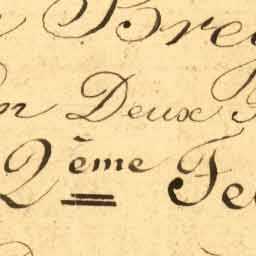 Bre
Deux
2ème Fe